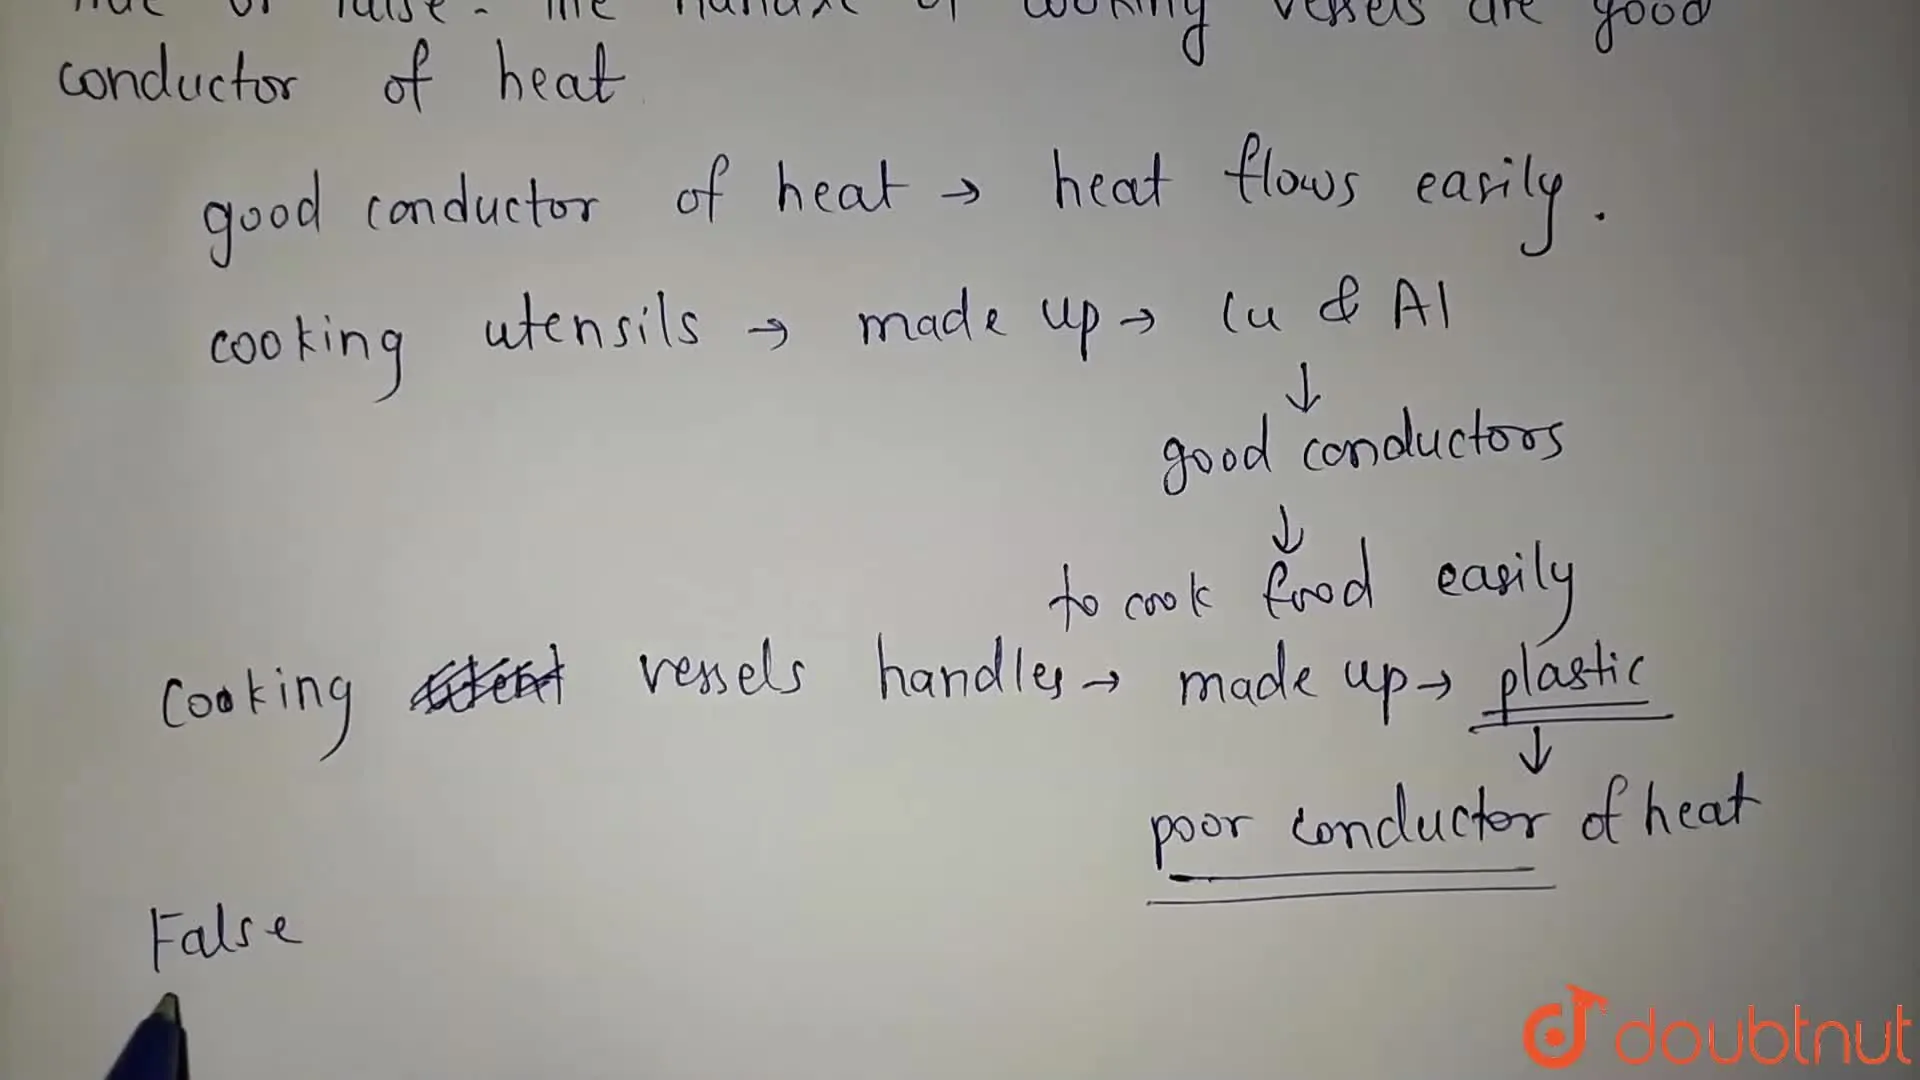 or false. The of cooking vessels are good
conductor of heat
good conductor of heat → heat flows easily.
cooking utensils → made up → Cu & Al
↓
good conductors
↓
to cook food easily
Cooking vessels handles → made up → plastic
↓
poor conductor of heat
False
doubtnut